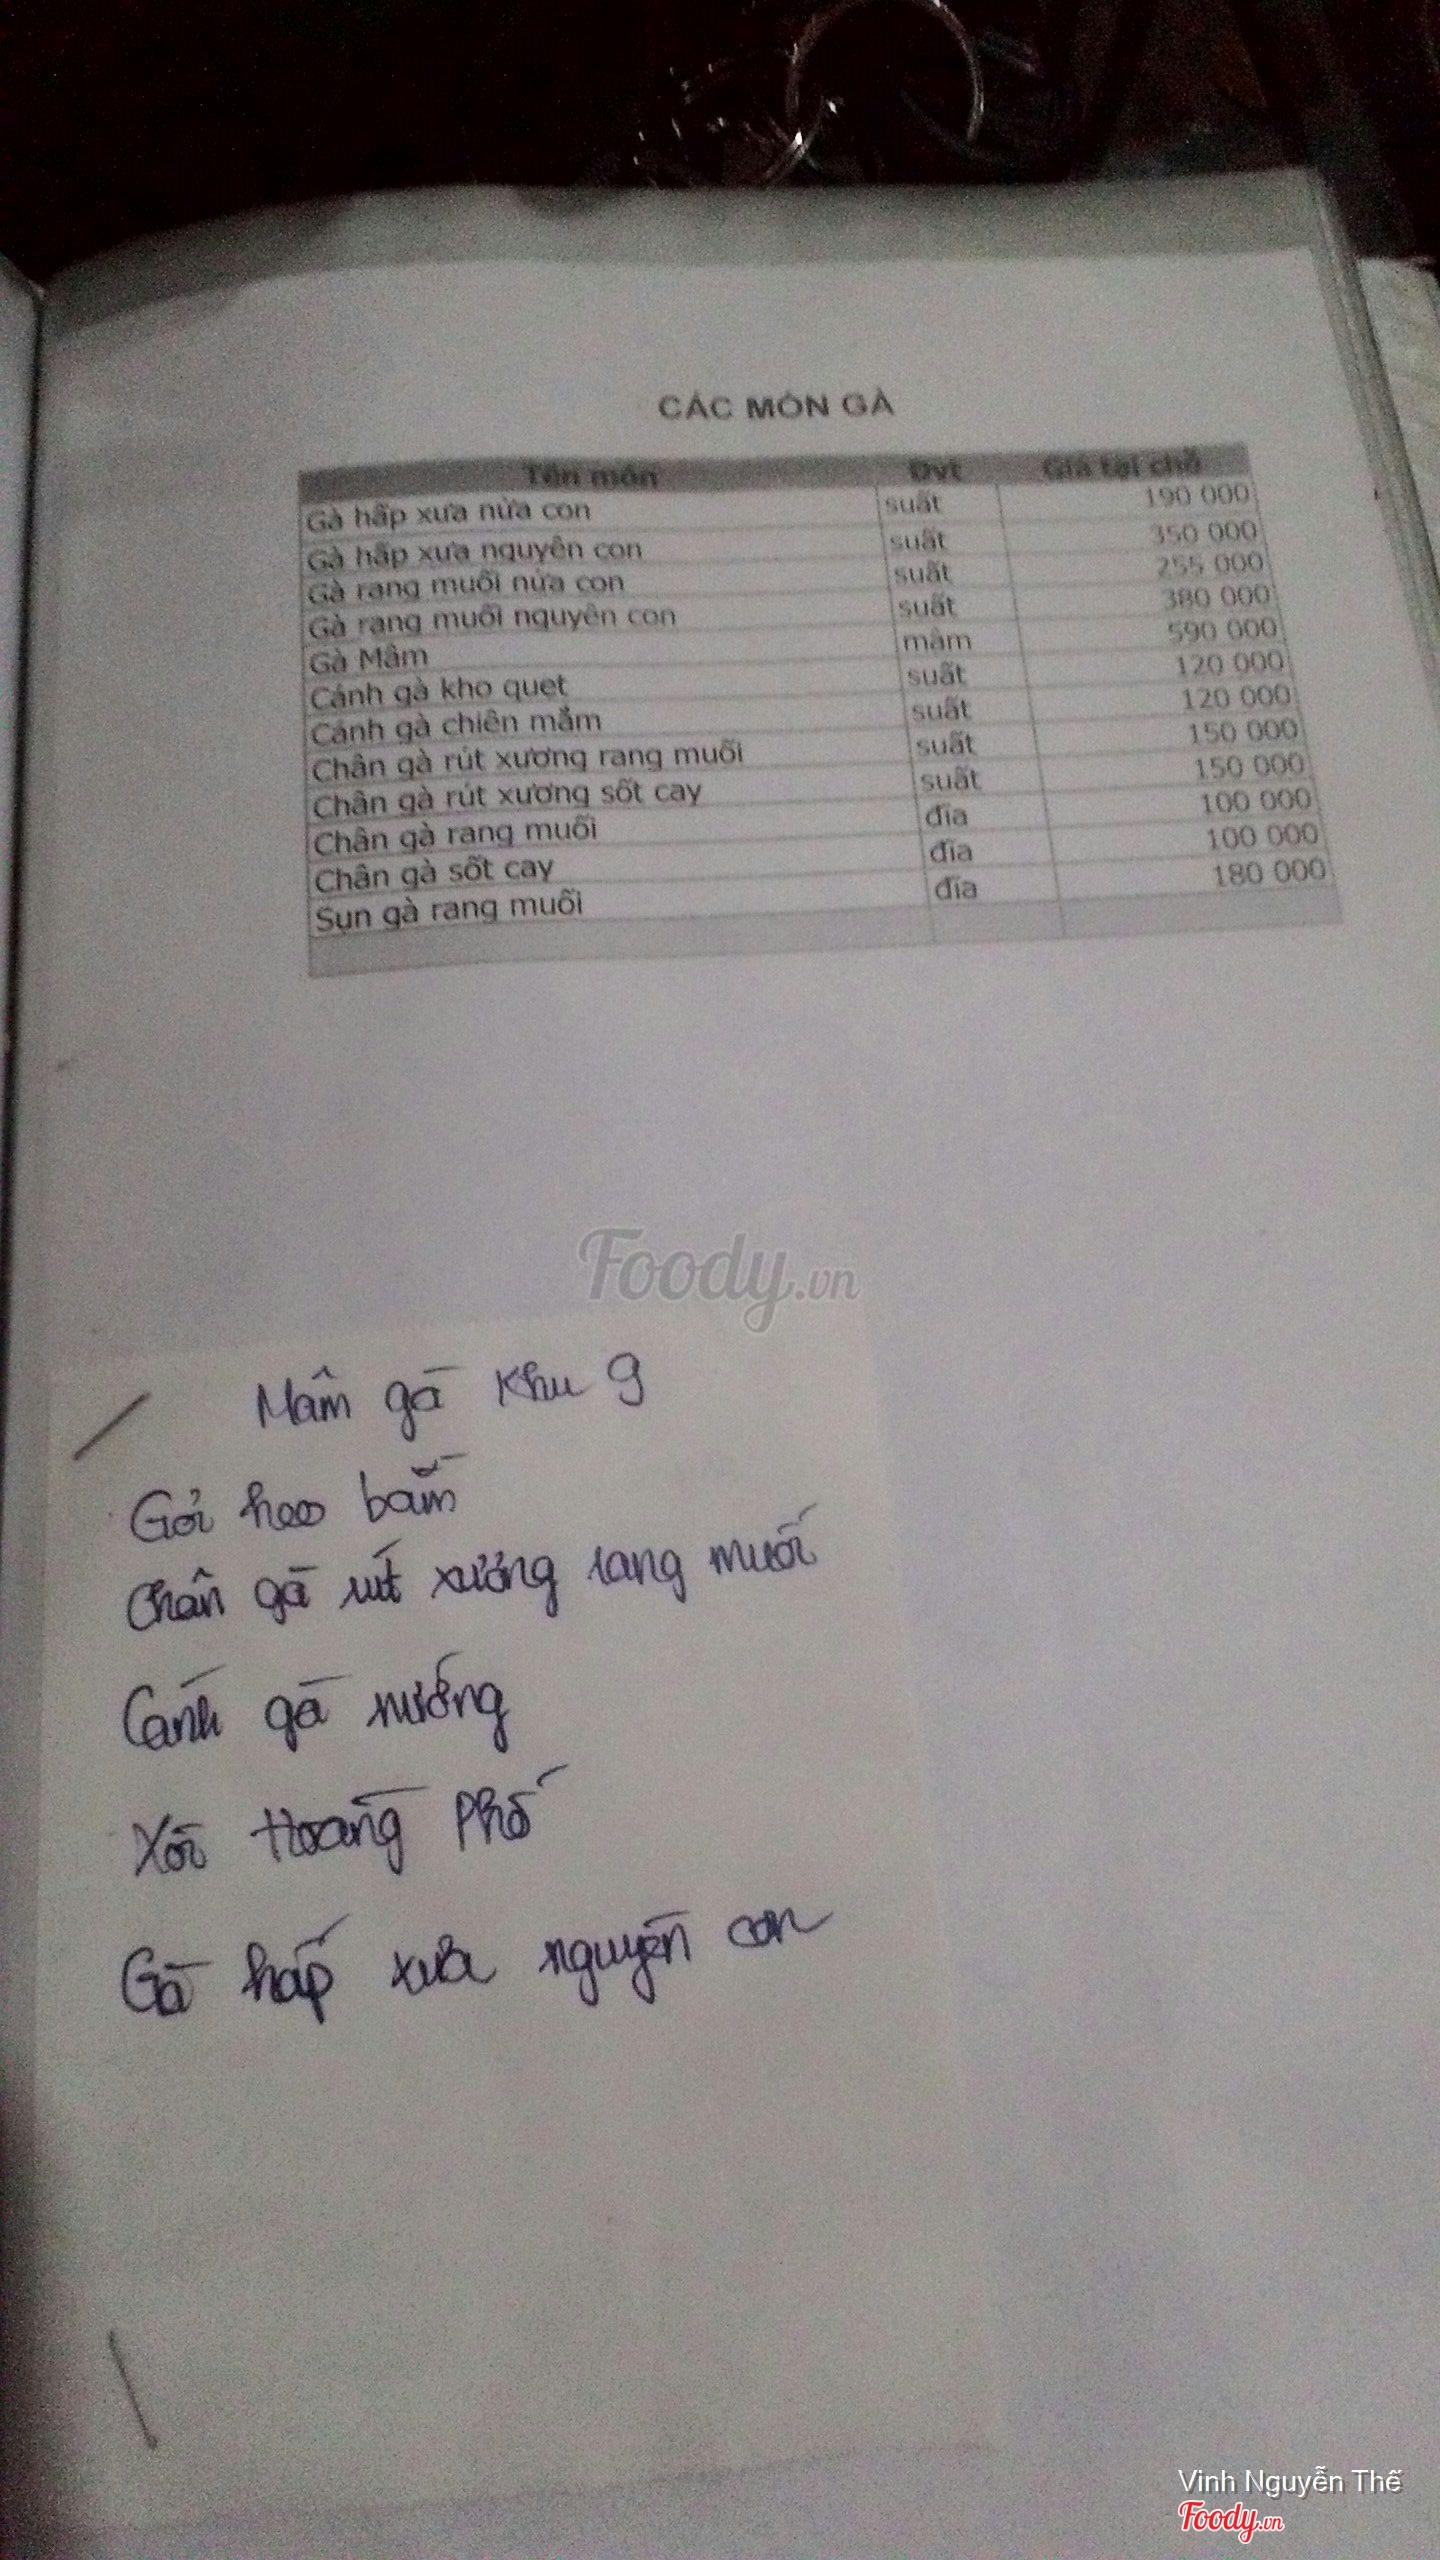 CÁC MÓN GÀ
Tên món Đvt Giá tại chỗ
Gà hấp xưa nửa con suất 190 000
Gà hấp xưa nguyên con suất 350 000
Gà rang muối nửa con suất 255 000
Gà rang muối nguyên con suất 380 000
Gà Mâm mâm 590 000
Cánh gà kho quẹt suất 120 000
Cánh gà chiên mắm suất 120 000
Chân gà rút xương rang muối suất 150 000
Chân gà rút xương sốt cay suất 150 000
Chân gà rang muối đĩa 100 000
Chân gà sốt cay đĩa 100 000
Sụn gà rang muối đĩa 180 000
Foody.vn
Mâm gà Khu 9
Gỏi heo bằm
Chân gà rút xương rang muối
Cánh gà nướng
Xôi Hoàng Phố
Gà hấp xưa nguyên con
Vinh Nguyễn Thế
Foody.vn